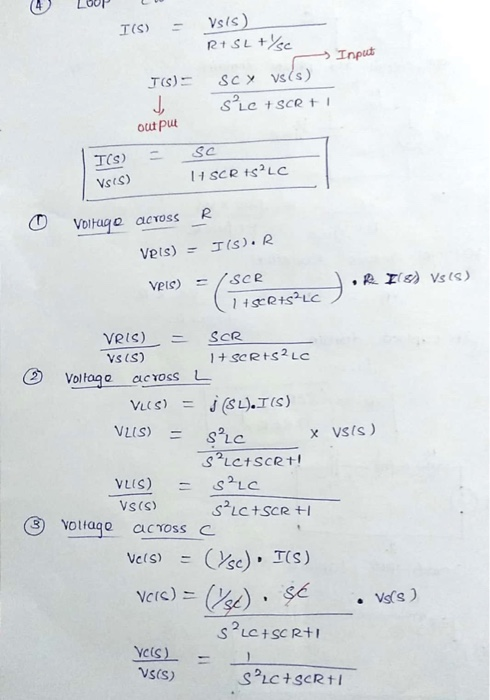 ④ Loop
I(S) = VS(S) / R+SL+1/SC
→ Input
I(S) = SC × VS(S) / S²LC + SCR + 1
↓
output
I(S) / VS(S) = SC / 1+SCR+S²LC
① Voltage across R
VR(S) = I(S).R
VR(S) = (SCR / 1+SCR+S²LC) . VS(S)
VR(S) / VS(S) = SCR / 1+SCR+S²LC
② Voltage across L
VL(S) = j(SL).I(S)
VL(S) = S²LC / S²LC+SCR+1 × VS(S)
VL(S) / VS(S) = S²LC / S²LC+SCR+1
③ Voltage across C
VC(S) = (1/SC) . I(S)
VC(S) = (1/SC) . SC / S²LC+SCR+1 . VS(S)
VC(S) / VS(S) = 1 / S²LC+SCR+1